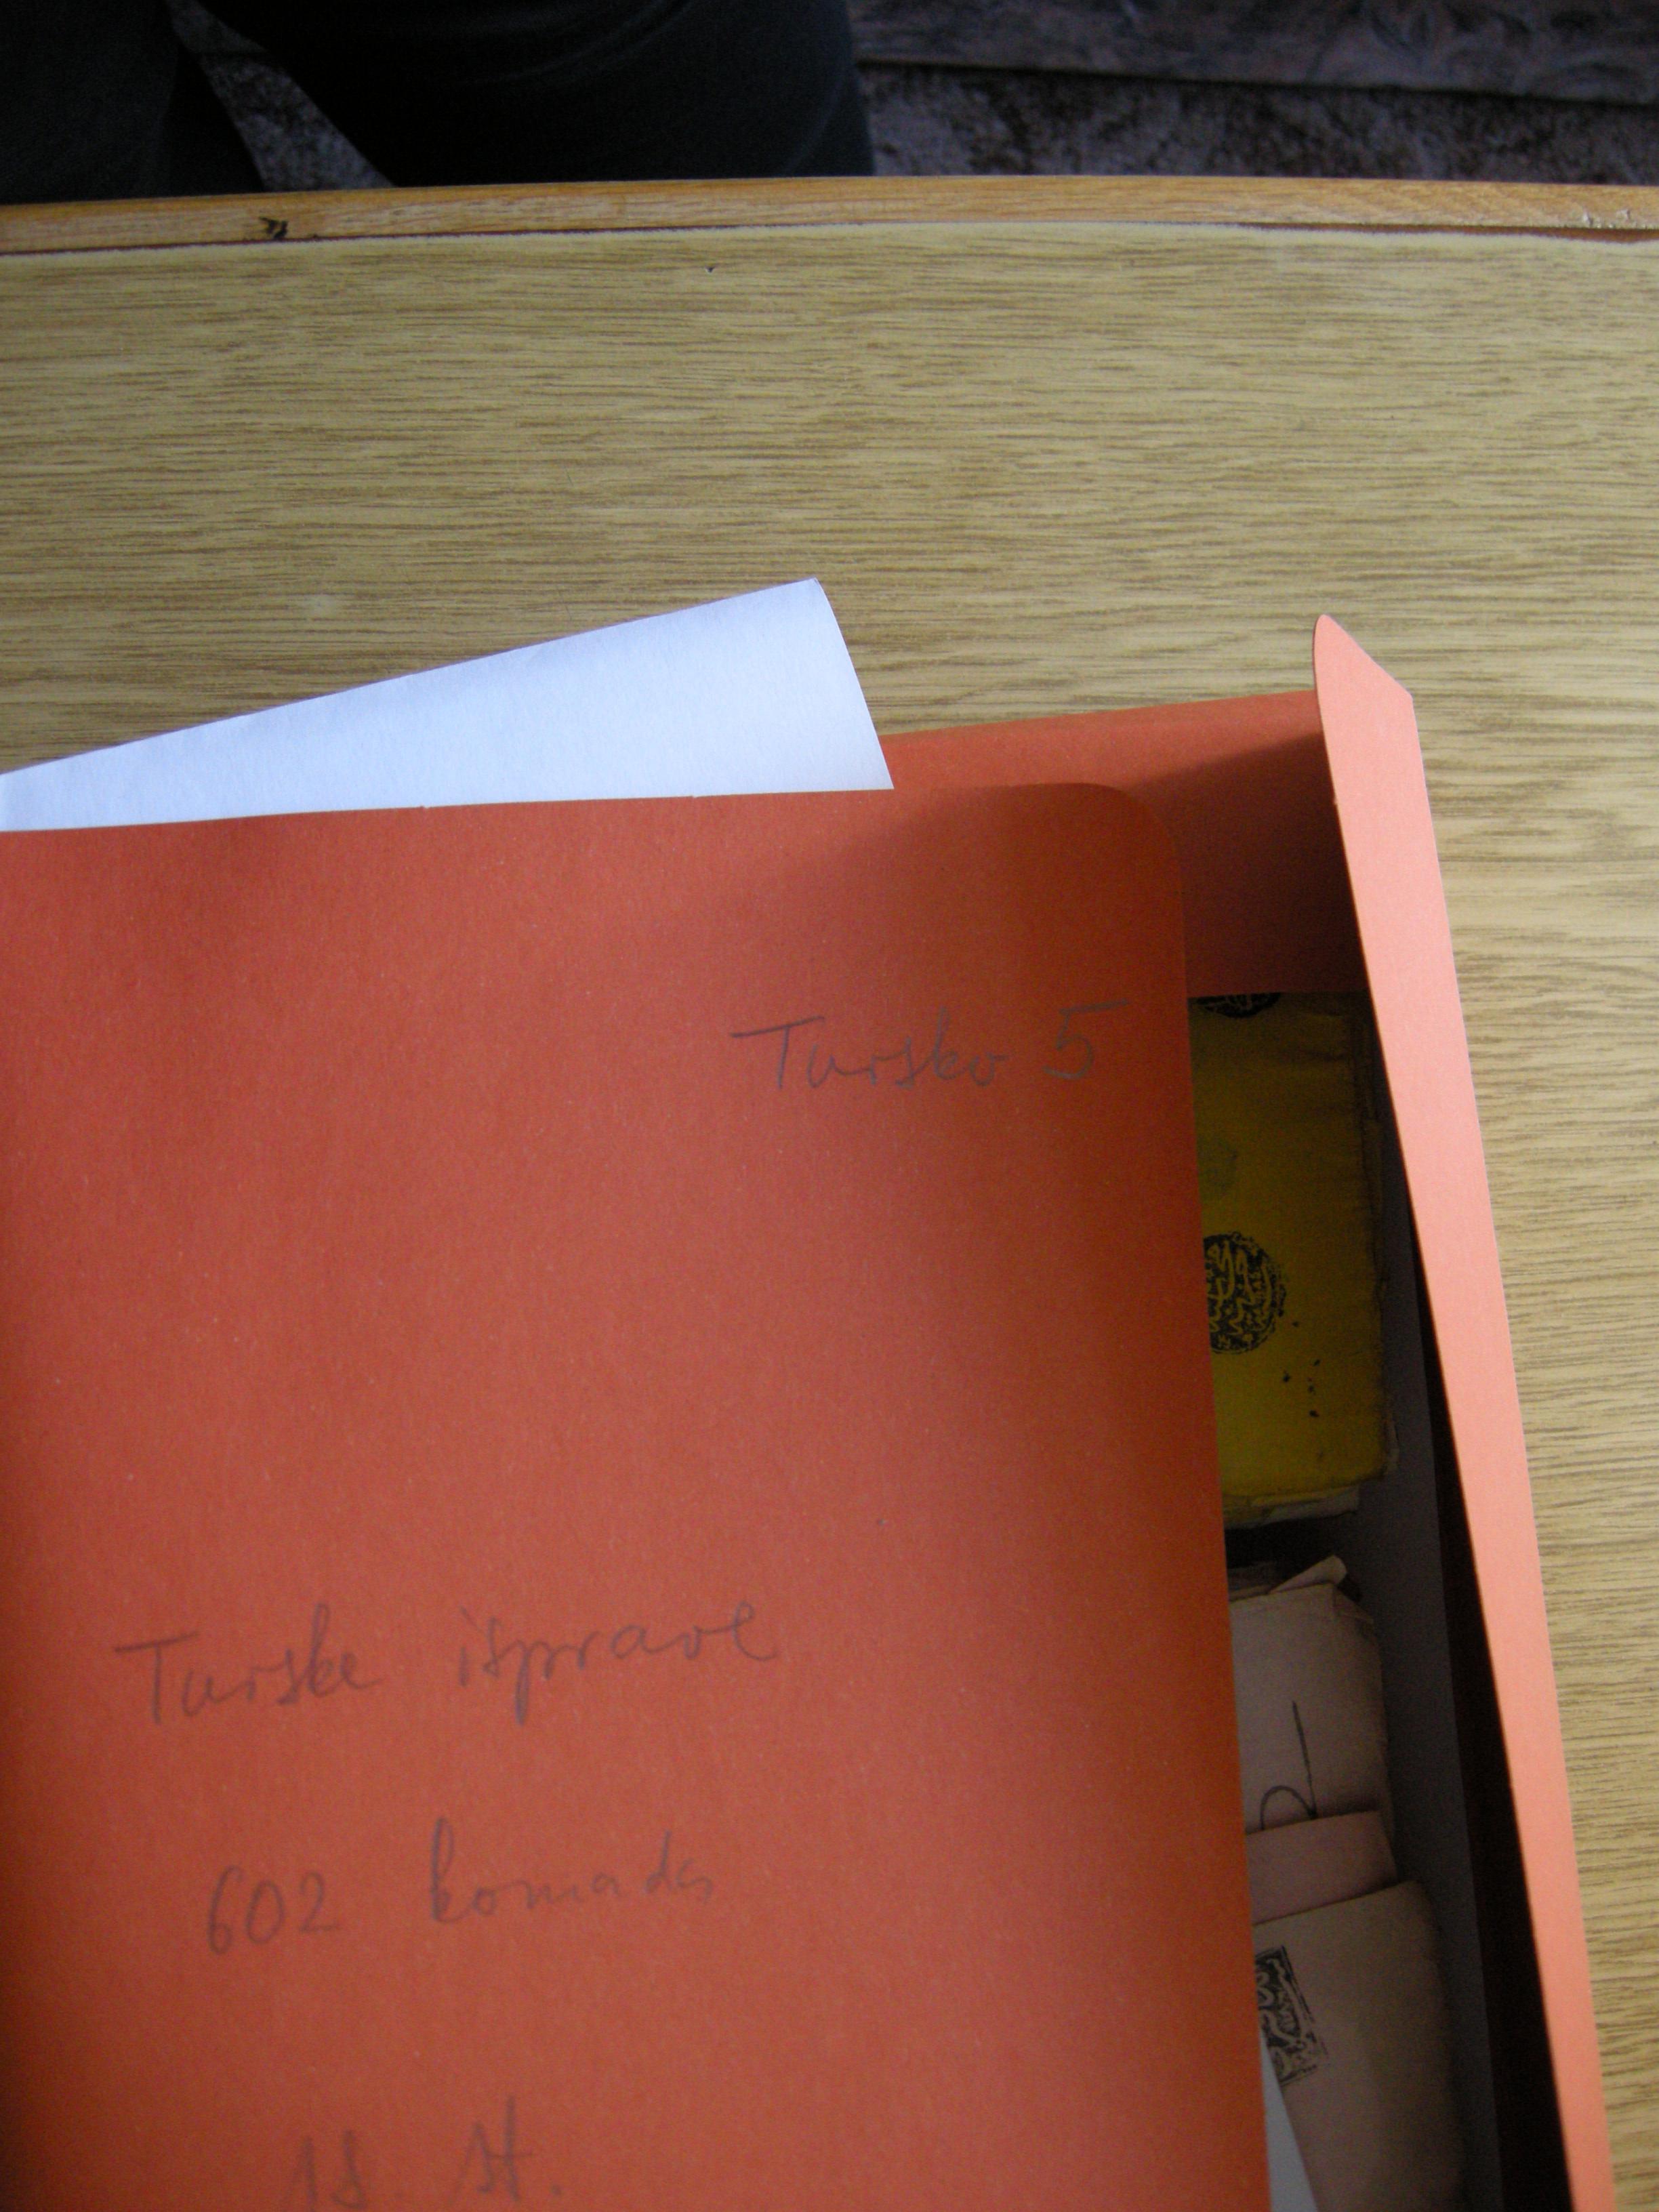 Tursko 5
Turske isprave
602 komada
18. st.
2